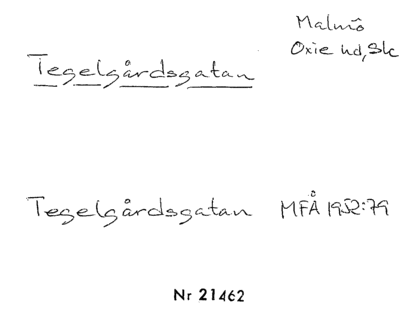 Malmö
Oxie hd, Sk
Tegelgårdsgatan
Tegelgårdsgatan MFÅ 1952:79
Nr 21462